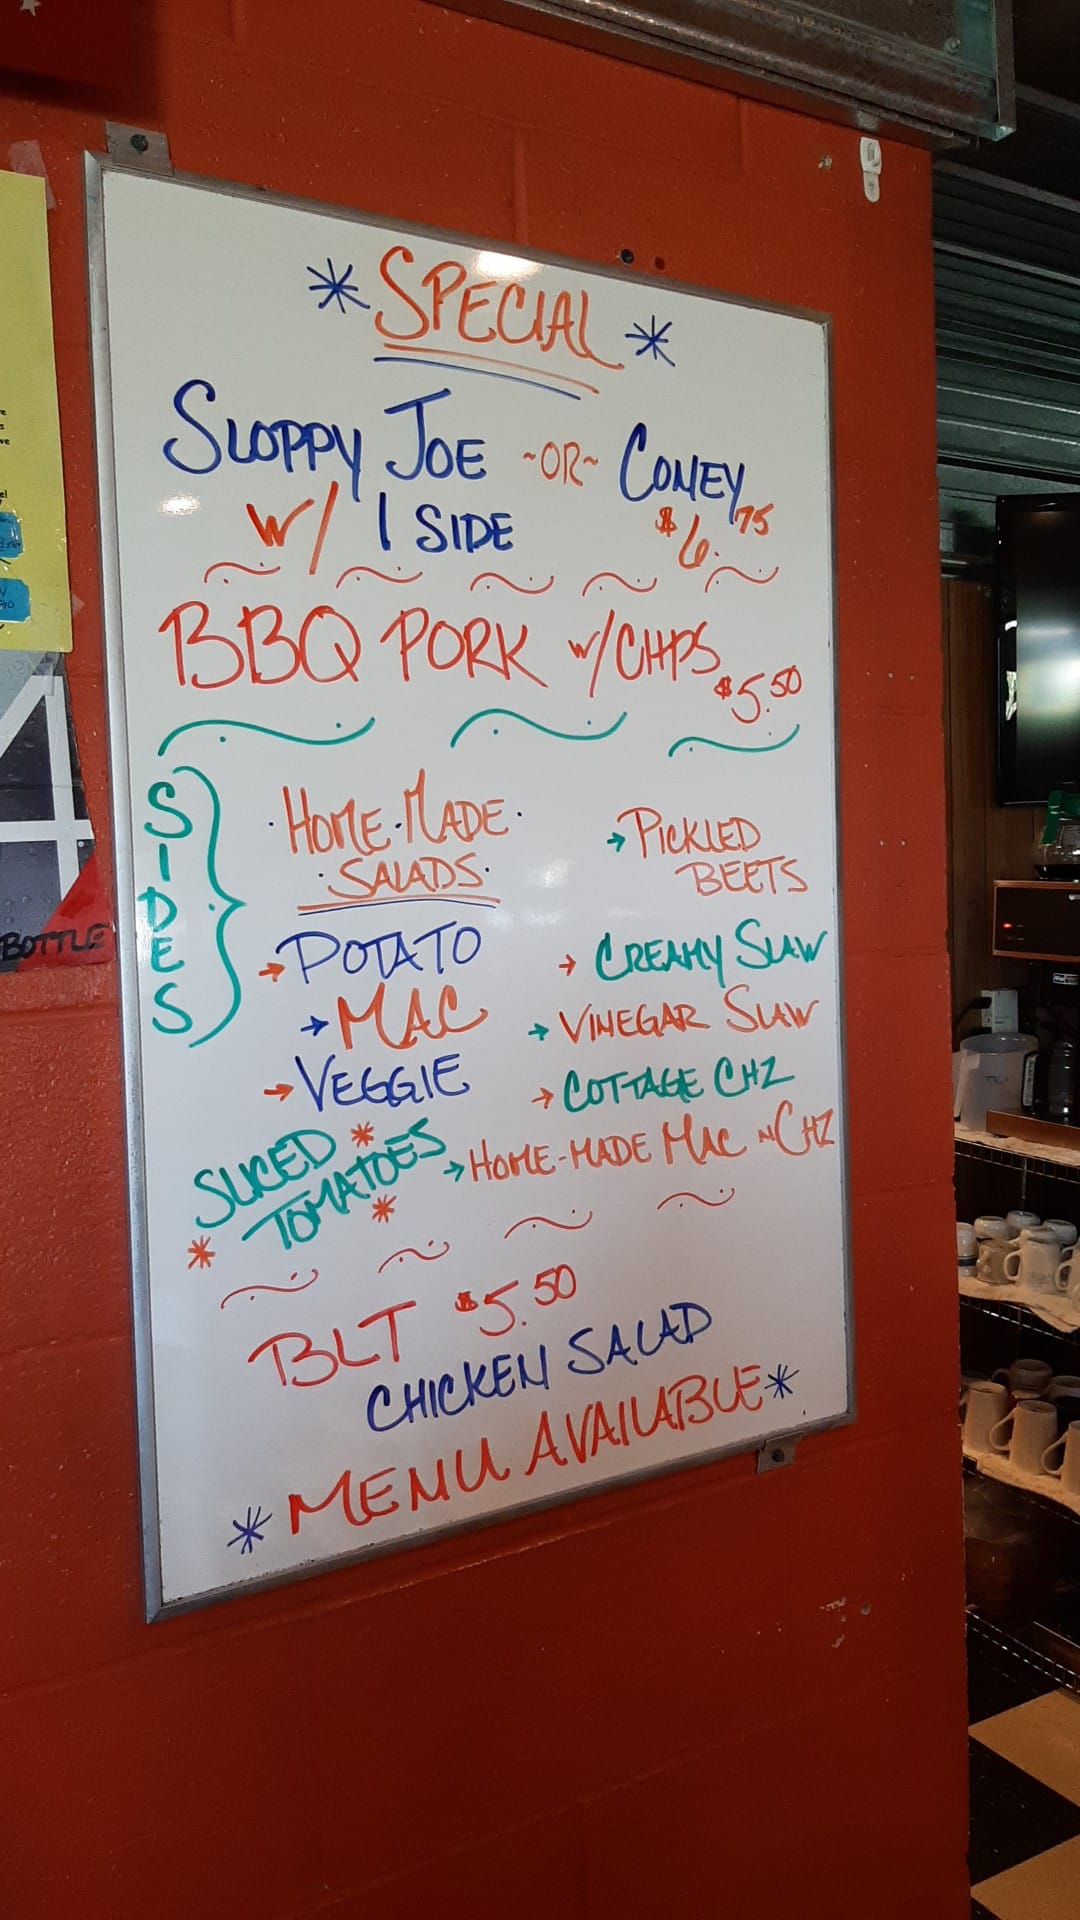 * SPECIAL *
SLOPPY JOE ~OR~ CONEY
W/ 1 SIDE $6.75
BBQ PORK W/CHPS $5.50
SIDES
·HOME·MADE·
·SALADS·
→POTATO
→MAC
→VEGGIE
SLICED *
TOMATOES
* *
→PICKLED
BEETS
→CREAMY SLAW
→VINEGAR SLAW
→COTTAGE CHZ
→HOME-MADE MAC N CHZ
BLT $5.50
CHICKEN SALAD
* MENU AVAILABLE *
BOTTLE